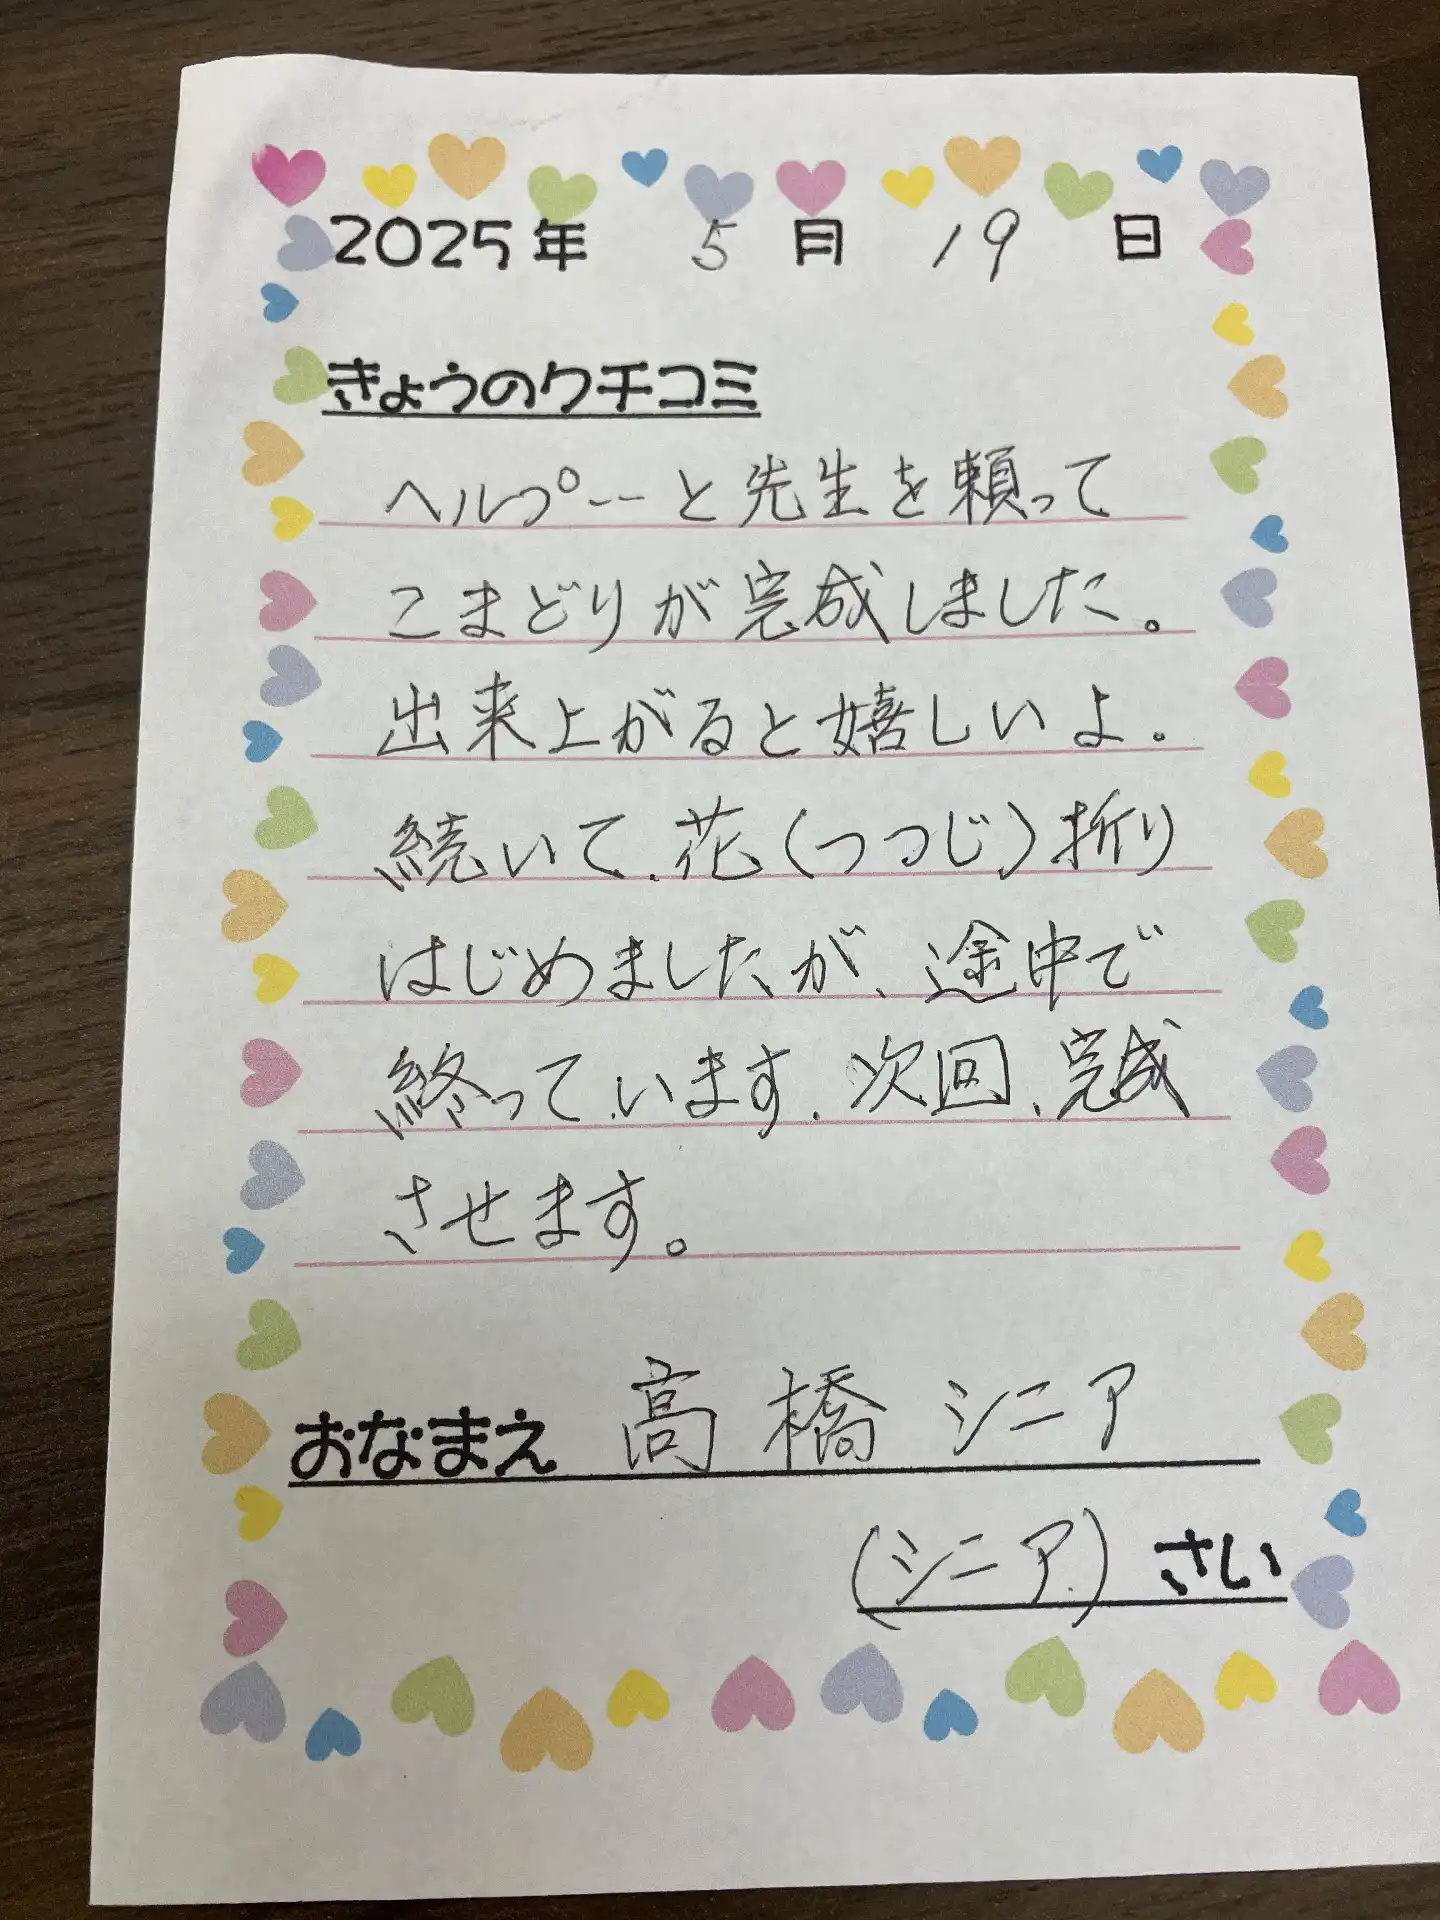 2025年 5月 19日
きょうのクチコミ
ヘルプーと先生を頼って
こまどりが完成しました。
出来上がると嬉しいよ。
続いて、花(つつじ)折り
はじめましたが、途中で
終っています。次回、完成
させます。
おなまえ 高橋シニア
(シニア) さい